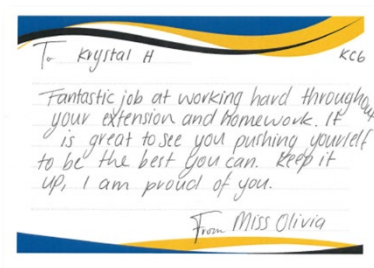 To Krystal H KC6
Fantastic job at working hard throughout
your extension and homework. It
is great to see you pushing yourself
to be the best you can. Keep it
up, I am proud of you.
From Miss Olivia